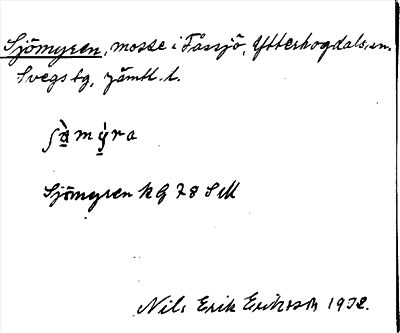 Sjömyren, mosse i Fåssjö, Ytterhogdals sn.
Svegs tg, Jämtl. l.
Sjömyren kg 78 SM
Nils Erik Eriksson 1932.